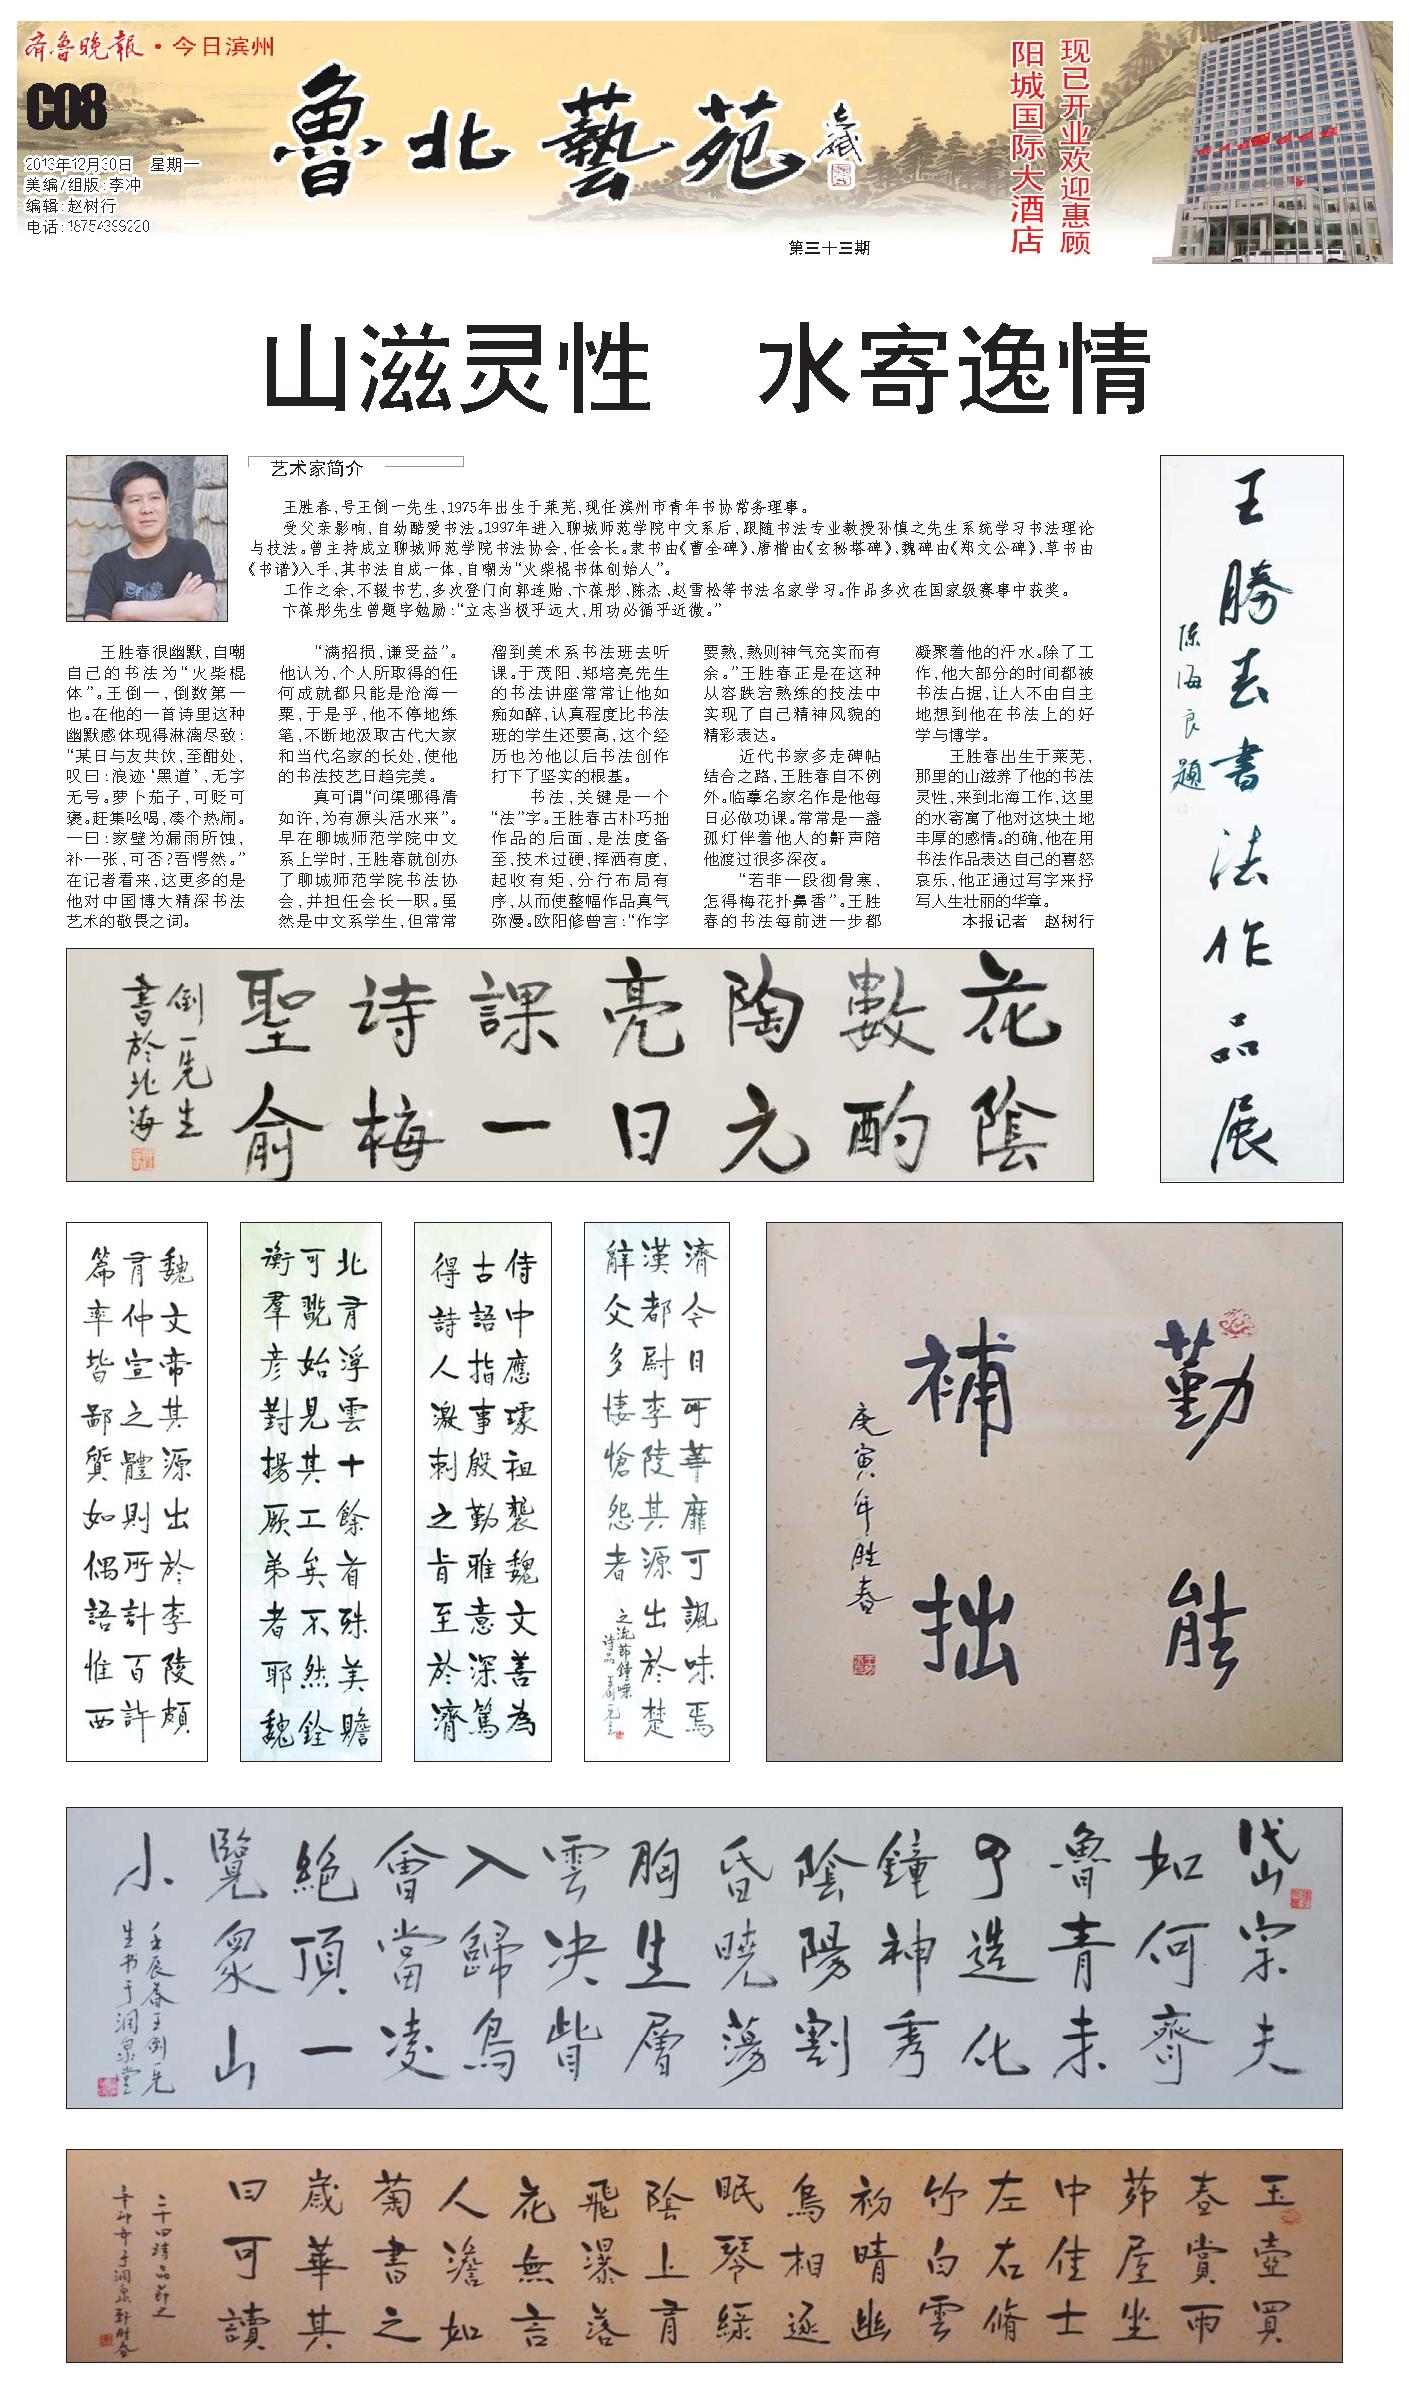 齐鲁晚报·今日滨州
C08
2013年12月30日 星期一
美编/组版:李冲
编辑:赵树行
电话:18754399220
魯北藝苑
第三十三期
现已开业欢迎惠顾
阳城国际大酒店
山滋灵性 水寄逸情
艺术家简介
王胜春,号王倒一先生,1975年出生于莱芜,现任滨州市青年书协常务理事。
受父亲影响,自幼酷爱书法。1997年进入聊城师范学院中文系后,跟随书法专业教授孙慎之先生系统学习书法理论
与技法。曾主持成立聊城师范学院书法协会,任会长。隶书由《曹全碑》、唐楷由《玄秘塔碑》、魏碑由《郑文公碑》、草书由
《书谱》入手,其书法自成一体,自嘲为“火柴棍书体创始人”。
工作之余,不辍书艺,多次登门向郭连贻、卞葆彤、陈杰、赵雪松等书法名家学习。作品多次在国家级赛事中获奖。
卞葆彤先生曾题字勉励:“立志当极乎远大,用功必循乎近微。”
王胜春很幽默,自嘲
自己的书法为“火柴棍
体”。王倒一,倒数第一
也。在他的一首诗里这种
幽默感体现得淋漓尽致:
“某日与友共饮,至酣处,
叹曰:浪迹‘黑道’,无字
无号。萝卜茄子,可贬可
褒。赶集吆喝,凑个热闹。
一曰:家壁为漏雨所蚀,
补一张,可否?吾愕然。”
在记者看来,这更多的是
他对中国博大精深书法
艺术的敬畏之词。
“满招损,谦受益”。
他认为,个人所取得的任
何成就都只能是沧海一
粟,于是乎,他不停地练
笔,不断地汲取古代大家
和当代名家的长处,使他
的书法技艺日趋完美。
真可谓“问渠哪得清
如许,为有源头活水来”。
早在聊城师范学院中文
系上学时,王胜春就创办
了聊城师范学院书法协
会,并担任会长一职。虽
然是中文系学生,但常常
溜到美术系书法班去听
课。于茂阳、郑培亮先生
的书法讲座常常让他如
痴如醉,认真程度比书法
班的学生还要高,这个经
历也为他以后书法创作
打下了坚实的根基。
书法,关键是一个
“法”字。王胜春古朴巧拙
作品的后面,是法度备
至,技术过硬,挥洒有度,
起收有矩,分行布局有
序,从而使整幅作品真气
弥漫。欧阳修曾言:“作字
要熟,熟则神气充实而有
余。”王胜春正是在这种
从容跌宕熟练的技法中
实现了自己精神风貌的
精彩表达。
近代书家多走碑帖
结合之路,王胜春自不例
外。临摹名家名作是他每
日必做功课。常常是一盏
孤灯伴着他人的鼾声陪
他渡过很多深夜。
“若非一段彻骨寒,
怎得梅花扑鼻香”。王胜
春的书法每前进一步都
凝聚着他的汗水。除了工
作,他大部分的时间都被
书法占据,让人不由自主
地想到他在书法上的好
学与博学。
王胜春出生于莱芜,
那里的山滋养了他的书法
灵性,来到北海工作,这里
的水寄寓了他对这块土地
丰厚的感情。的确,他在用
书法作品表达自己的喜怒
哀乐,他正通过写字来抒
写人生壮丽的华章。
本报记者 赵树行
王勝春書法作品展
陈海良題
花陰
數酌
陶元
亮日
課一
诗梅
聖俞
倒一先生
書於北海
魏文帝其源出於李陵頗
有仲宣之體則所計百許
篇率皆鄙質如偶語惟西
北有浮雲十餘首殊美贍
可翫始見其工矣不然銓
衡羣彦對揚厥弟者耶魏
侍中應璩祖襲魏文善為
古語指事殷勤雅意深篤
得詩人激刺之旨至於濟
濟今日所華靡可諷味焉
漢都尉李陵其源出於楚
辭文多悽愴怨者
之流節鐘嶸
诗品
勤能
補拙
庚寅年胜春
岱宗夫
如何齊
魯青未
了造化
鐘神秀
陰陽割
昏曉蕩
胸生層
雲决眥
入歸鳥
會當凌
絕頂一
覽衆山
小
壬辰春王倒一先
生书于润泉堂
玉壺買
春賞雨
茆屋坐
中佳士
左右脩
竹白雲
初晴幽
鳥相逐
眠琴緑
陰上有
飛瀑落
花無言
人澹如
菊書之
歲華其
曰可讀
二十四诗品節之
辛卯年于润泉轩胜春